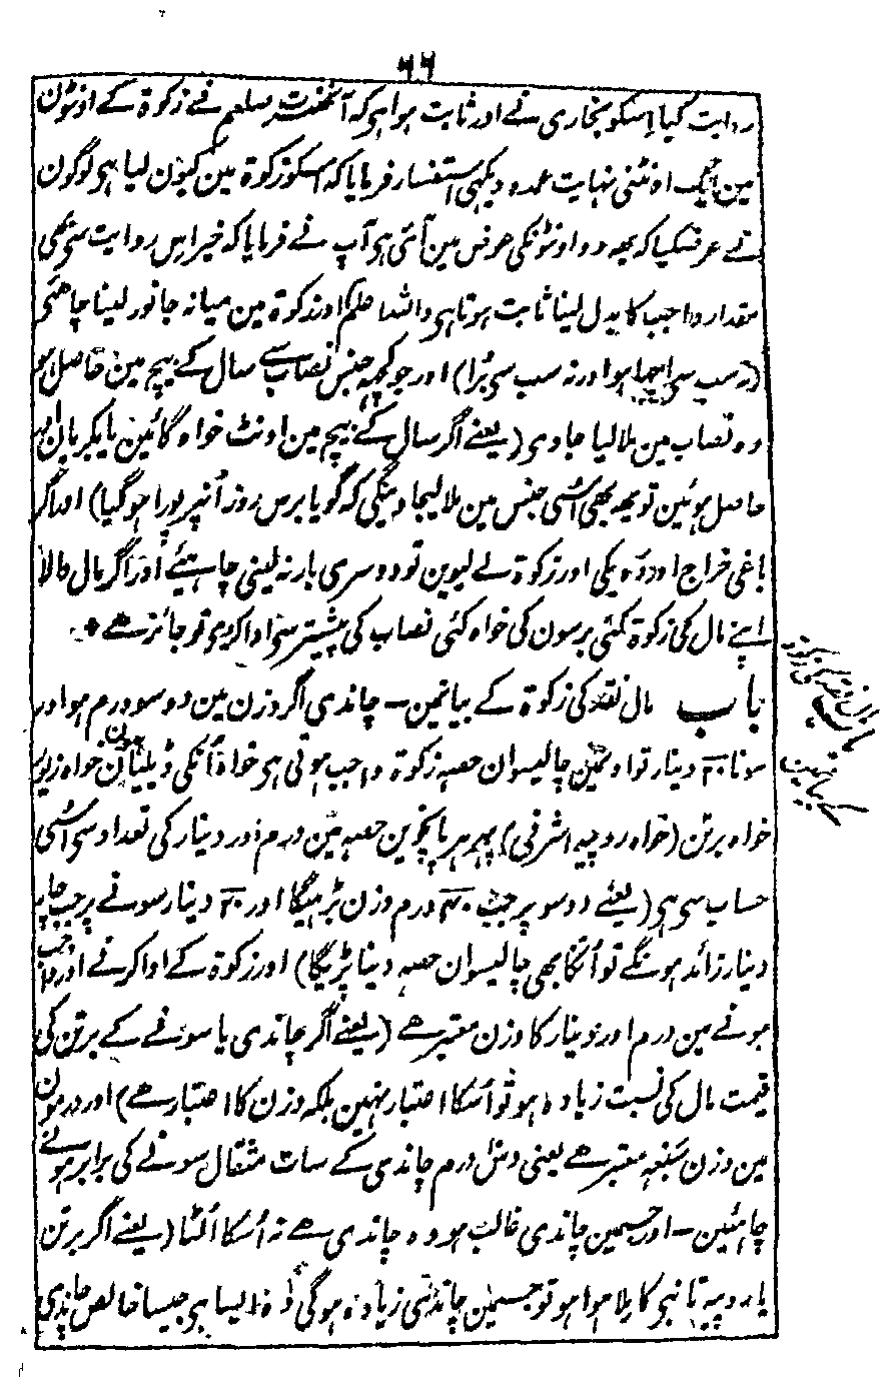 ۶۶
روایت کیا اِسکو بخاری نے اور ثابت ہوا ہی کہ آنحضرت صلعم نے زکوۃ کے اونٹون
مین ایک اونٹنی نہایت عمدہ دیکھی استفسار فرمایا کہ اسکو زکوۃ مین کیون لیا ہی لوگون
نے عرض کیا کہ یہہ دو اونٹونکی عوض مین آئی ہی آپ نے فرمایا کہ خیر اس روایت سی بھی
مقدار واجب کا بدل لینا ثابت ہوتا ہی واللہ اعلم اور زکوۃ مین میانہ جانور لینا چاھئی
(نہ سب سی اچھا ہو اور نہ سب سی بُرا) اور جو کچھہ جنس نصاب سے سال کے بیچ مین حاصل ہو
وہ نصاب مین ملا لیا جاوی (یعنے اگر سال کے بیچ مین اونٹ خواہ گائین یا بکریان اور
حاصل ہوئین تو یہہ بھی اُسی جنس مین ملا لیجاوینگی کہ گویا برس روز اُنپر پورا ہو گیا) اور اگر
باغی خراج اور دہ یکی اور زکوۃ لے لیوین تو دوسری بار نہ لینی چاہیئے اور اگر مال والا
اپنے مال کی زکوۃ کئی برسون کی خواہ کئی نصاب کی پیشتر سی ادا کردی تو جائز ھے
باب مال نقد کی زکوۃ کے بیانمین – چاندی اگر وزن مین دو سو درم ہو اور
سونا ۲۰ دینار تو اونمین چالیسوان حصہ زکوۃ واجب ہوتی ہی خواہ اُنکی ڈلیان ہون خواہ زیور
خواہ برتن (خواہ روپیہ اشرفی) پھر ہر پانچوین حصہ مین درم اور دینار کی تعداد سی اُسی
حساب سی ہی (یعنے دو سو پر جب ۴۰ درم وزن بڑہیگا اور ۲۰ دینار سونے پر جب چار
دینار زائد ہونگے تو اُنکا بھی چالیسوان حصہ دینا پڑیگا) اور زکوۃ کے ادا کرنے اور واجب
ہونے مین درم اور دینار کا وزن معتبر ھے (یعنے اگر چاندی یا سونے کے برتن کی
قیمت مال کی نسبت زیادہ ہو تو اُسکا اعتبار نہین بلکہ وزن کا اعتبار ھے) اور درمون
مین وزن سَبعہ معتبر ھے یعنی دس درم چاندی کے سات مثقال سونے کی برابر ہونے
چاہئین – اور جسمین چاندی غالب ہو وہ چاندی ھے نہ اُسکا اُلٹا (یعنے اگر برتن
یا روپیہ تانبی کا ملا ہوا ہو تو جسمین چاندی زیادہ ہوگی وہ ایسا ہی جیسا خالص چاندی